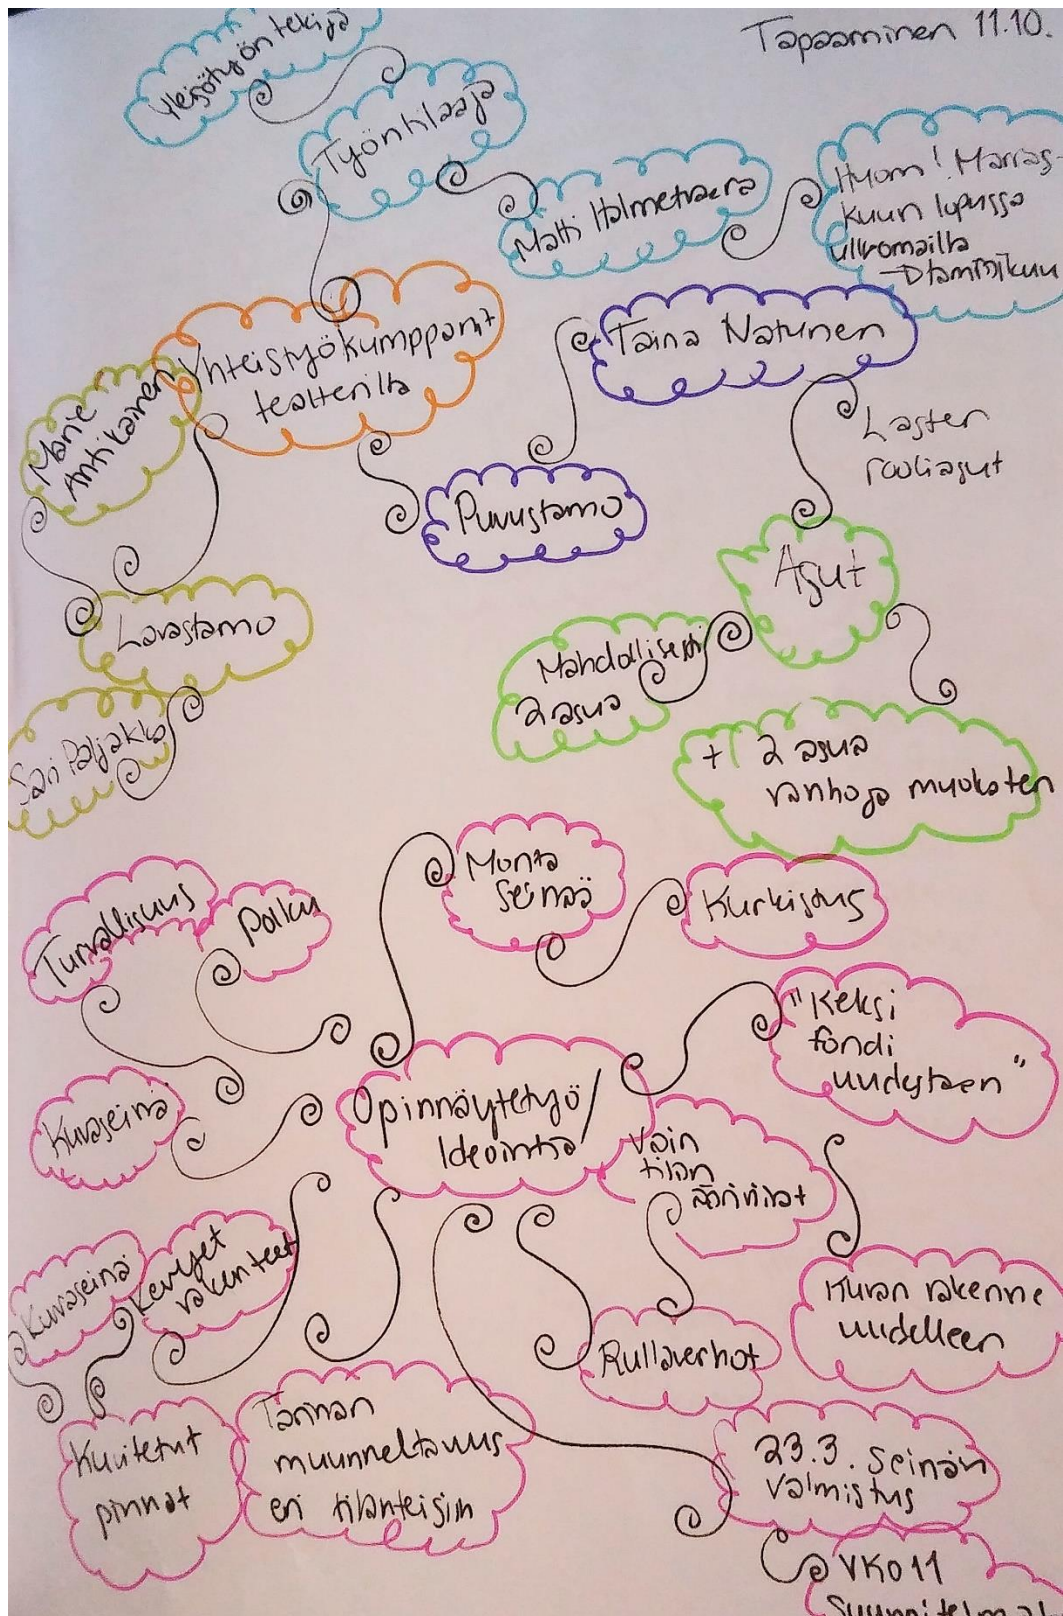 Tapaaminen 11.10.
Yleisötyöntekijä
Työntilaaja
Matti
Huom! Marras-
kuun lopussa
ulkomailla
→tammikuu
Yhteistyökumppanit
teatterilla
Taina Natunen
Marie
Antikainen
Lasten
rooliasut
Puvustamo
Asut
Lavastamo
Mahdollisesti
2 asua
Sari Paljakka
+ 2 asua
vanhoja muokaten
Monta
seinää
Kurkistus
Turvallisuus
Polku
"Keksi
fondi
uudestaan"
Kuvaseinä
Opinnäytetyö/
Ideointia
Vain
tilan
ääriviivat
Kuvaseinä
Kevyet
rakenteet
Kuvan rakenne
uudelleen
Rullaverhot
Kuvitetut
pinnat
Tarinan
muunneltavuus
eri tilanteisiin
23.3. Seinän
valmistus
VKO 11
Suunnitelmat